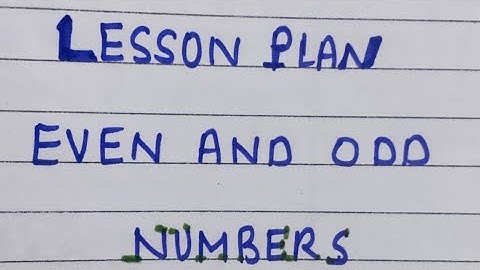 LESSON PLAN
EVEN AND ODD
NUMBERS